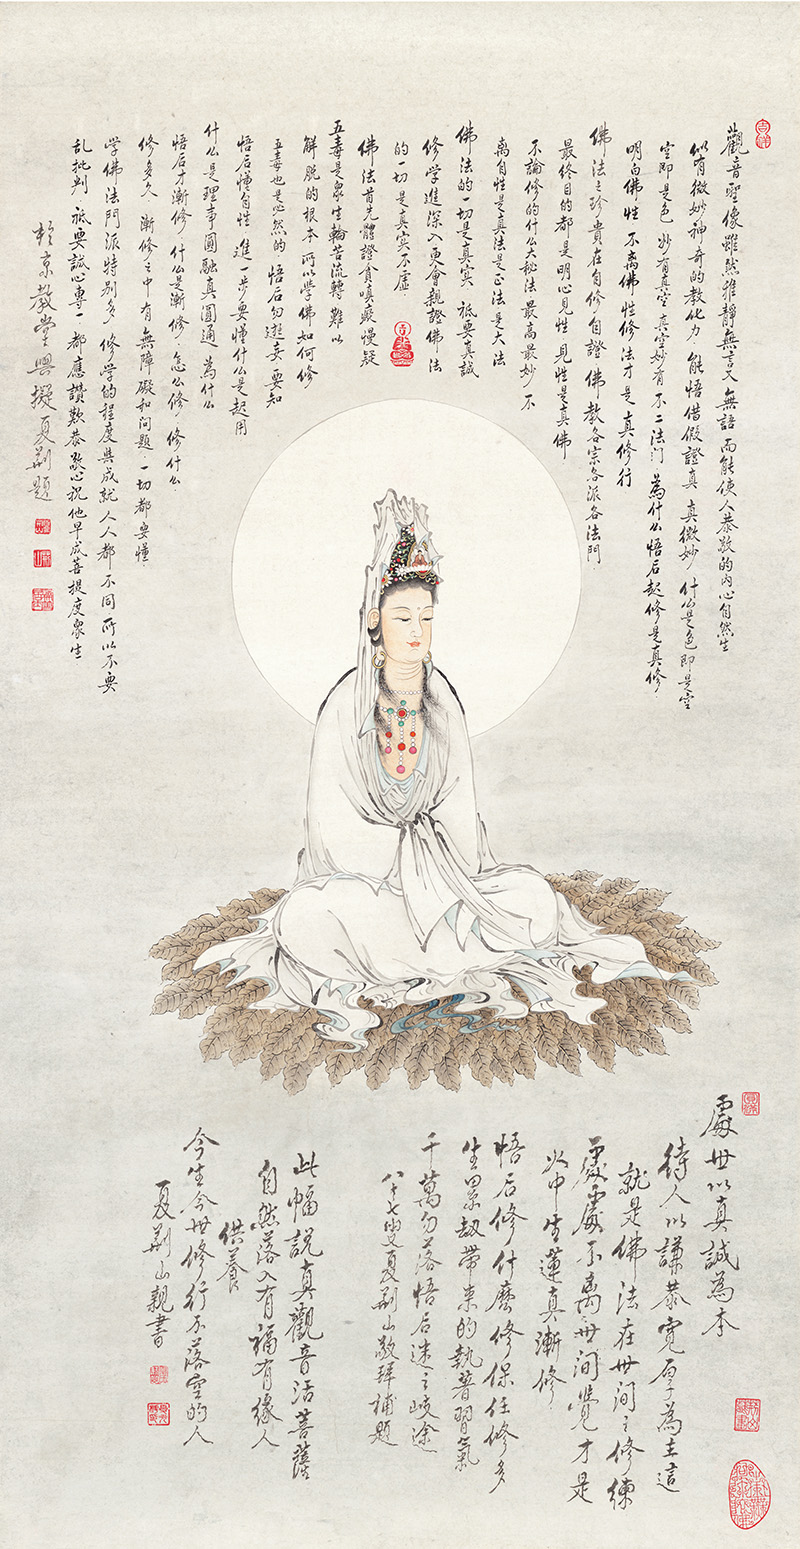 觀音聖像雖然雅靜無言又無語而能使人恭敬的内心自然生
似有微妙神奇的教化力能悟借假證真真微妙什么是色即是空
空即是色妙有真空真空妙有不二法门為什么悟后起修是真修
明白佛性不离佛性修法才是真修行
佛法之珍貴在自修自證佛教各宗各派各法門
最终目的都是明心見性見性是真佛
不論修的什么大秘法最高最妙不
离自性是真法是正法是大法
佛法的一切是真实祗要真誠
修學進深入更會親證佛法
的一切是真实不虛
佛法首先體證貪嗔癡慢疑
五毒是衆生輪苦流轉難以
解脱的根本所以學佛如何修
五毒也是必然的悟后勿遊妄要知
悟后懂自性進一步要懂什么是起用
什么是理事圓融真圓通為什么
悟后才漸修什么是漸修怎么修修什么
修多久漸修之中有無障礙和问题一切都要懂
学佛法門派特别多修学的程度與成就人人都不同所以不要
乱批判祗要誠心專一都應讚歎恭敬心祝他早成菩提度衆生
於京教堂興擬夏荆题
處世以真誠為本
待人以謙恭寬厚為主這
就是佛法在世间之修練
處處不离世间覺才是
火中生蓮真漸修
悟后修什麽修保任修多
生累劫帶来的執着習氣
千萬勿落悟后迷之岐途
八十七叟夏荆山敬拜補題
此幅説真觀音活菩薩
自然落入有福有缘人
供養
今生今世修行不落空的人
夏荆山親書